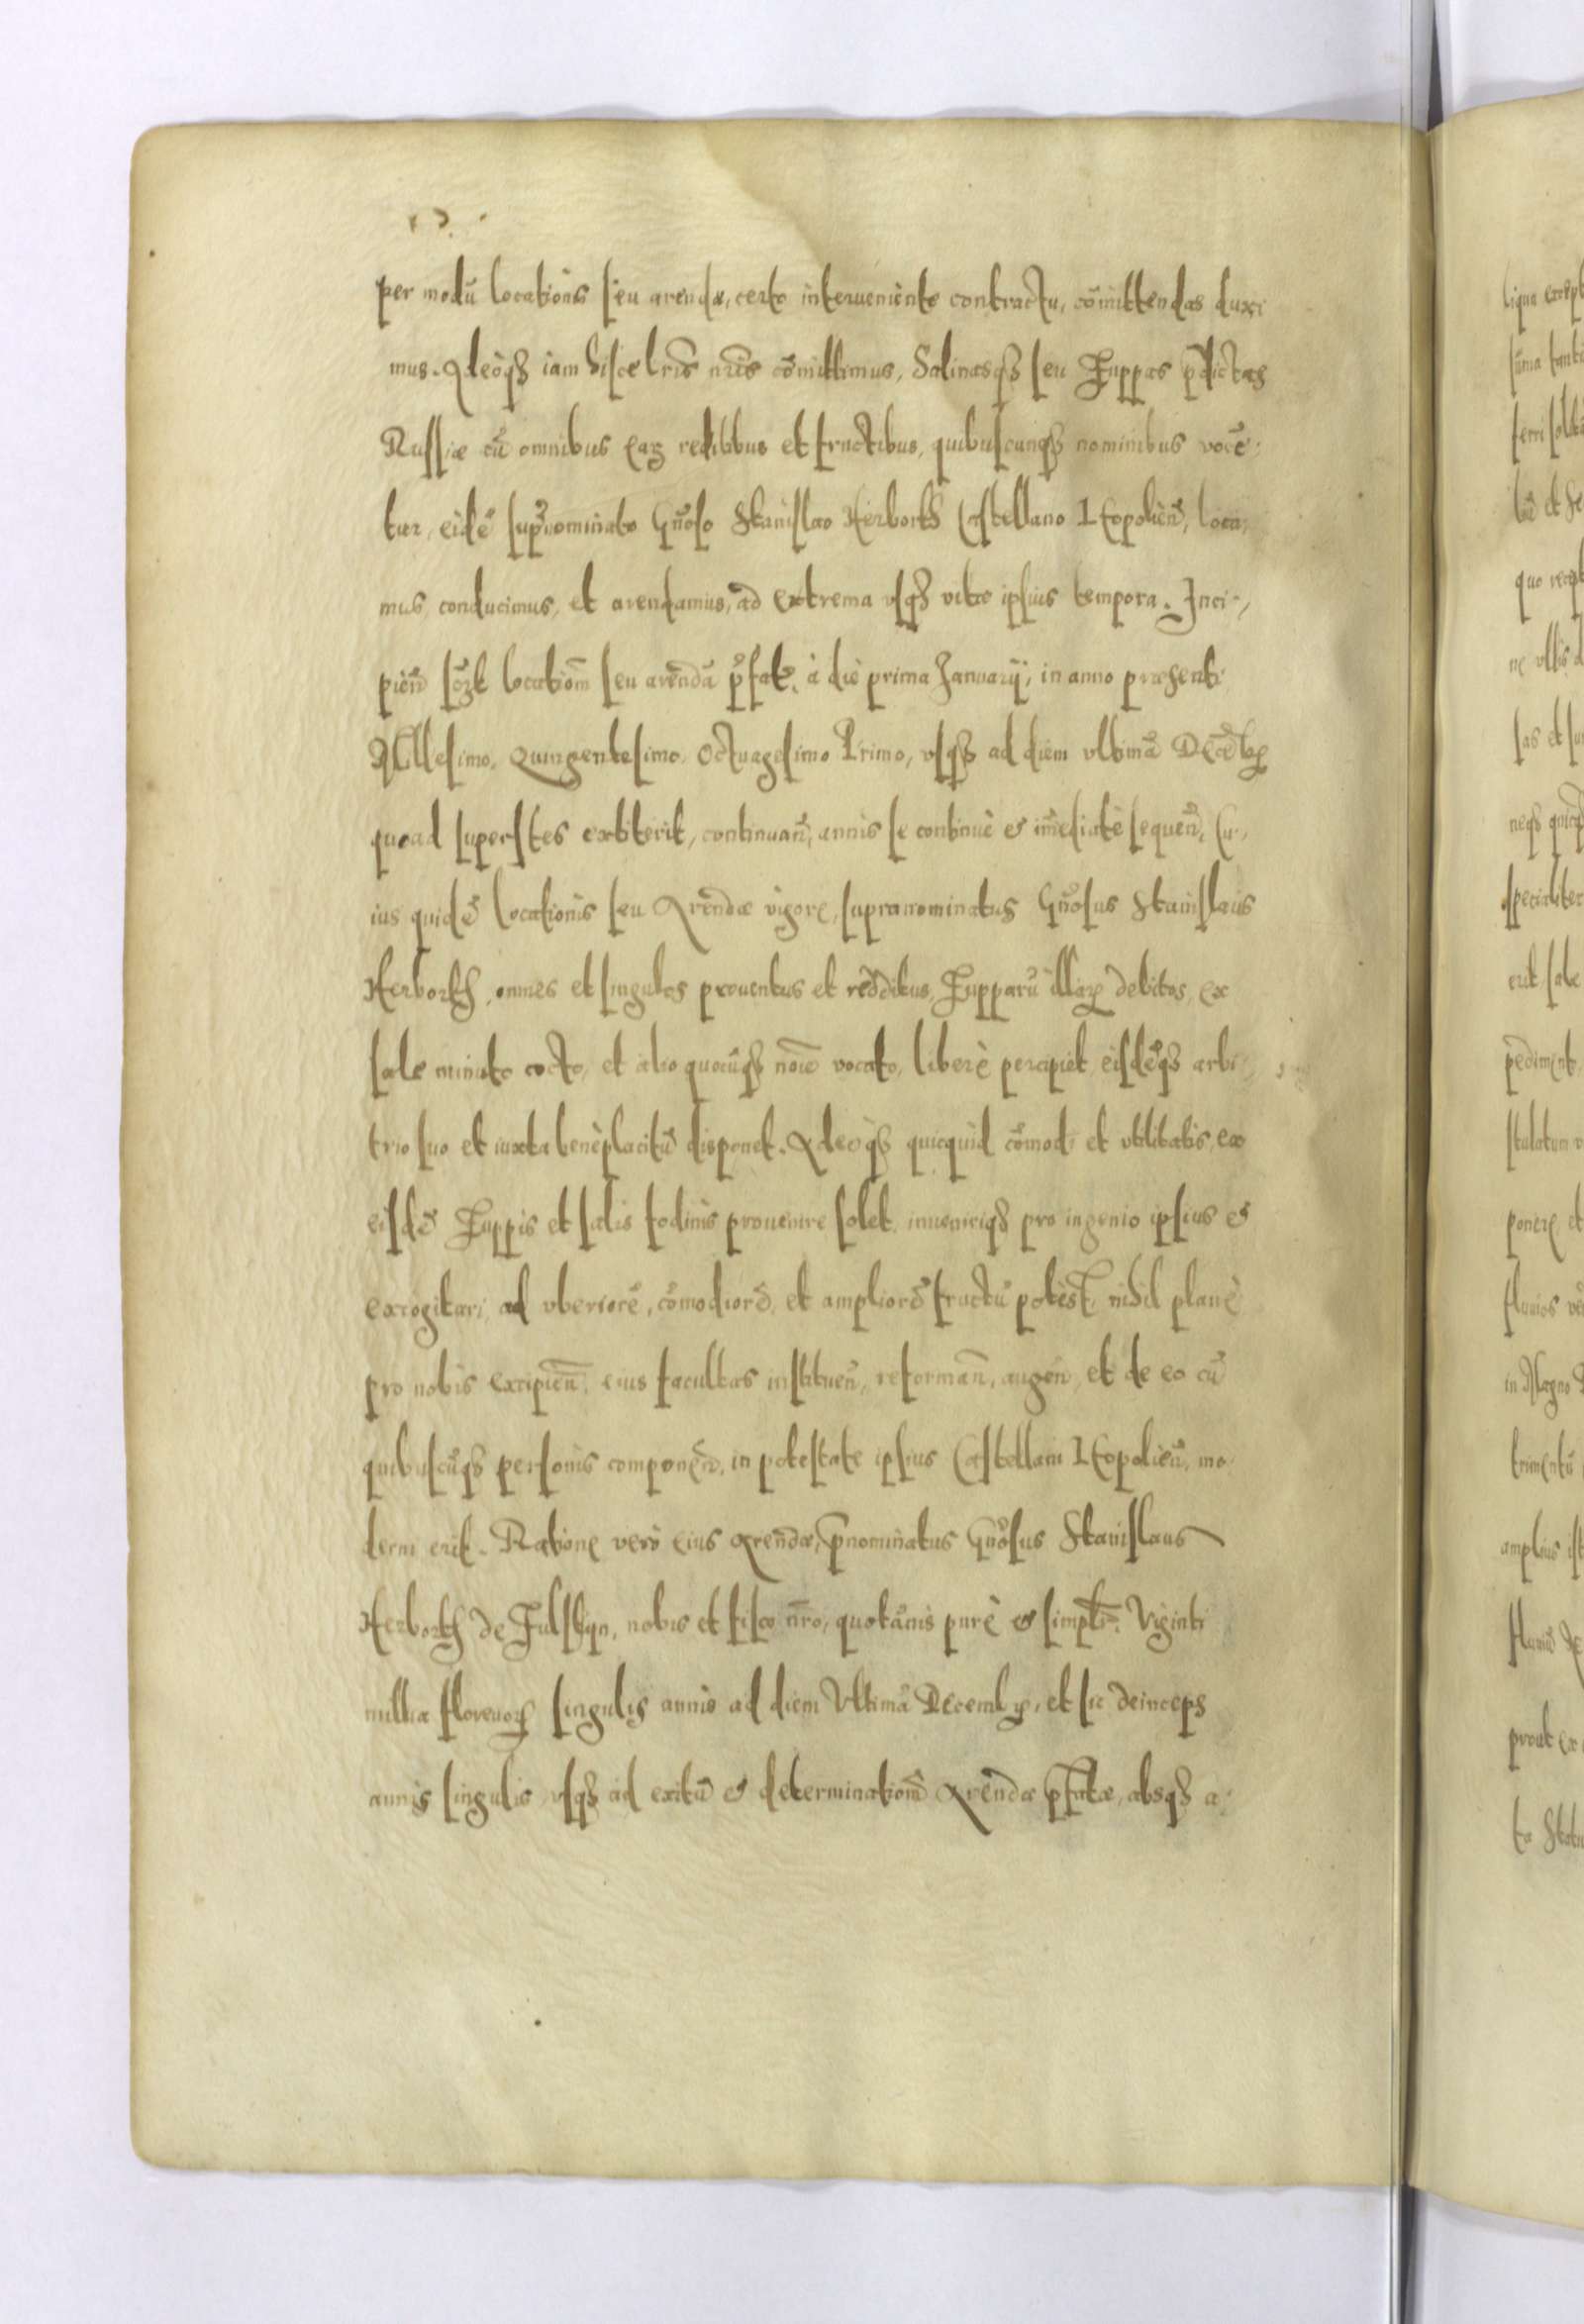 per modū locationis seu arendæ, certo interueniente contractu, cōmittendas duxi
mus. Adeoq̃ iam hisce lr̃is nr̃is cōmittimus, Salinasq̃ seu Zuppas p̃dictas
Russiæ cū omnibus eaꝝ redditibus et fructibus, quibuscunq̃ nominibus vocē-
tur, eidē sup̃nominato Gñoso Stanislao Herborth Castellano Leopolień, loca-
mus, conducimus, et arendamus, ad extrema vsq̃ vitæ ipsius tempora. Inci-
pień scꝫt locationē seu arendā p̃fat̃, à die prima Januarij, in anno præsenti
Millesimo, Quingentesimo, Octuagesimo Primo, vsq̃ ad diem vltimā Decēbꝝ
quoad superstes extiterit, continuañ, annis se continuè & im̄ediatè sequeñ. Cu-
ius quidē locationis seu Arendæ vigore, supranominatus Gñosus Stanislaus
Herborth, omnes et singulos prouentus et redditus, Zupparū illaꝝ debitos, ex
sale minuto cocto, et alio quocūq̃ noīe vocato, liberè percipiet, eisdēq̃ arbi-
trio suo et iuxta beneplacitū disponet. Adeoq̃ quicquid cōmodi et vtilitatis, ex
eisdē Zuppis et salis fodinis prouenire solet, inueniriq̃ pro ingenio ipsius &
excogitari, ad vberiorē, cōmodiorē, et ampliorē fructū potest, nihil planè
pro nobis excipień, eius facultas institueñ, reformañ, augeñ, et de eo cū
quibuscūq̃ personis componeñ, in potestate ipsius Castellani Leopolień, mo-
derni erit. Ratione verò eius Arendæ, p̃nominatus Gñosus Stanislaus
Herborth de Fulstyn, nobis et fisco nr̃o, quotānis purè & simplr̃. Viginti
millia florenoꝝ singulis annis ad diem Vltimā Decembꝝ, et sic deinceps
annis singulis, vsq̃ ad exitū & determinationē Arendæ p̃fatæ, absq̃ a-